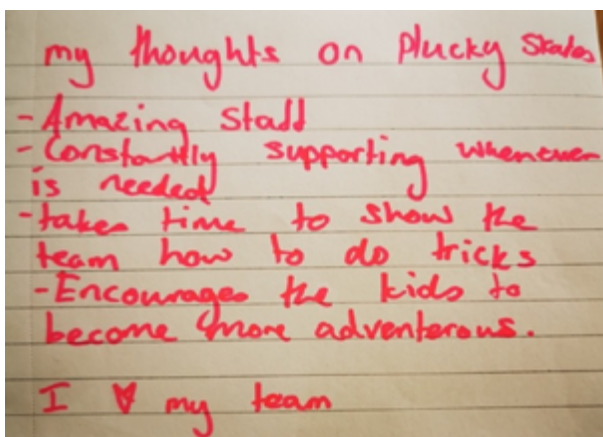 my thoughts on Plucky Skates
- Amazing Staff
- Constantly supporting whenever
is needed
- takes time to show the
team how to do tricks
- Encourages the kids to
become more adventerous.
I ♥ my team